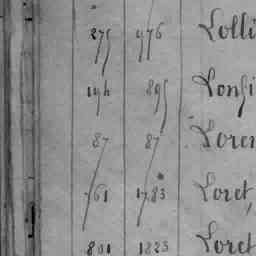 275 976 Lolli
194 895 Lonsi
87 87 Loren
761 1783 Loret,
801 1823 Loret